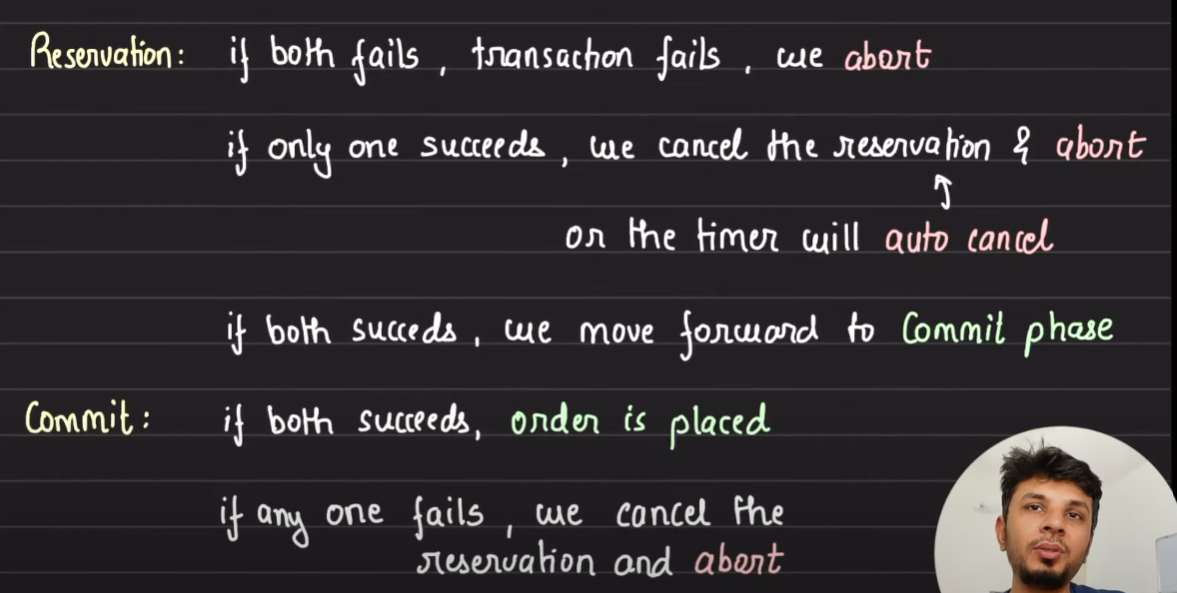 Reservation: if both fails, transaction fails, we abort
if only one succeeds, we cancel the reservation & abort
or the timer will auto cancel
if both succeds, we move forward to Commit phase
Commit: if both succeeds, order is placed
if any one fails, we cancel the
reservation and abort